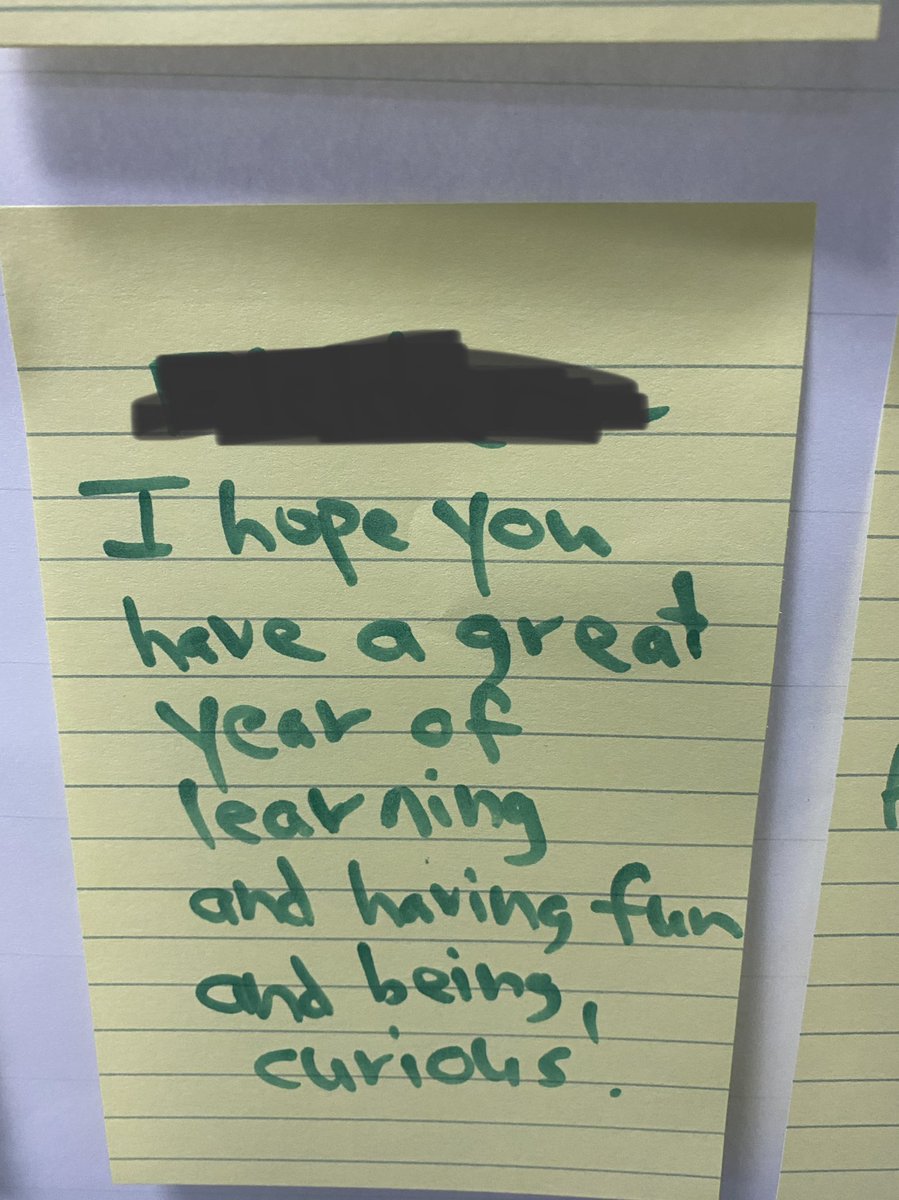 I hope you
have a great
year of
learning
and having fun
and being
curious!